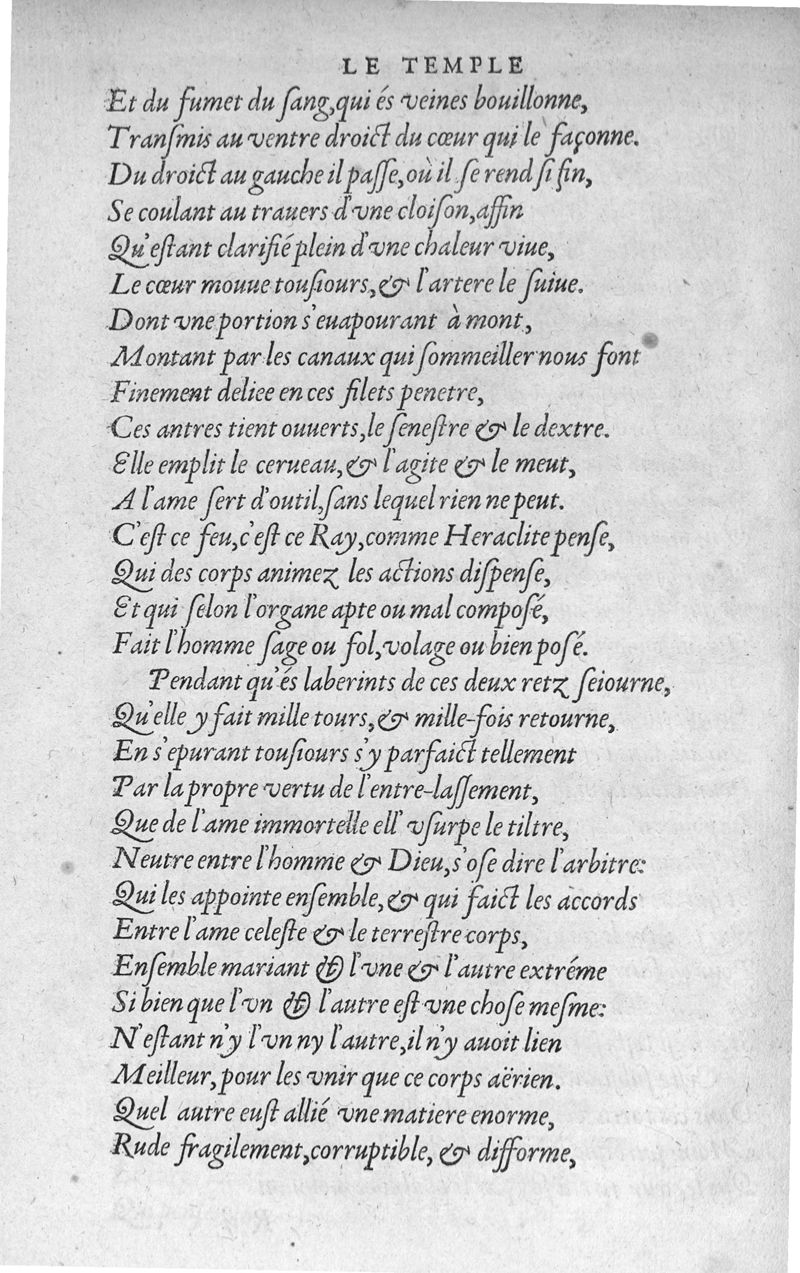 LE TEMPLE
Et du fumet du ſang,qui és veines bouillonne,
Tranſmis au ventre droict du cœur qui le façonne.
Du droict au gauche il paſſe,où il ſe rend ſi fin,
Se coulant au trauers d'vne cloiſon,affin
Qu'eſtant clarifié plein d'vne chaleur viue,
Le cœur mouue touſiours,& l'artere le ſuiue.
Dont vne portion s'euapourant à mont,
Montant par les canaux qui ſommeiller nous font
Finement deliee en ces filets penetre,
Ces antres tient ouuerts,le ſeneſtre & le dextre.
Elle emplit le cerueau,& l'agite & le meut,
A l'ame ſert d'outil,ſans lequel rien ne peut.
C'eſt ce feu,c'eſt ce Ray,comme Heraclite penſe,
Qui des corps animez les actions diſpenſe,
Et qui ſelon l'organe apte ou mal compoſé,
Fait l'homme ſage ou fol,volage ou bien poſé.
Pendant qu'és laberints de ces deux retz ſeiourne,
Qu'elle y fait mille tours,& mille-fois retourne,
En s'epurant touſiours s'y parfaict tellement
Par la propre vertu de l'entre-laſſement,
Que de l'ame immortelle ell' vſurpe le tiltre,
Neutre entre l'homme & Dieu,s'oſe dire l'arbitre:
Qui les appointe enſemble,& qui faict les accords
Entre l'ame celeſte & le terreſtre corps,
Enſemble mariant & l'vne & l'autre extréme
Si bien que l'vn & l'autre eſt vne choſe meſme:
N'eſtant n'y l'vn ny l'autre,il n'y auoit lien
Meilleur,pour les vnir que ce corps aërien.
Quel autre euſt allié vne matiere enorme,
Rude fragilement,corruptible, & difforme,